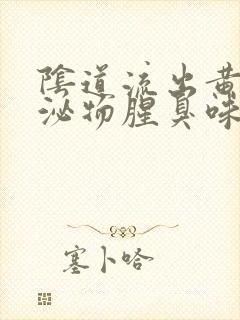 陰道流出黃
泌物腥臭味
塞卜哈